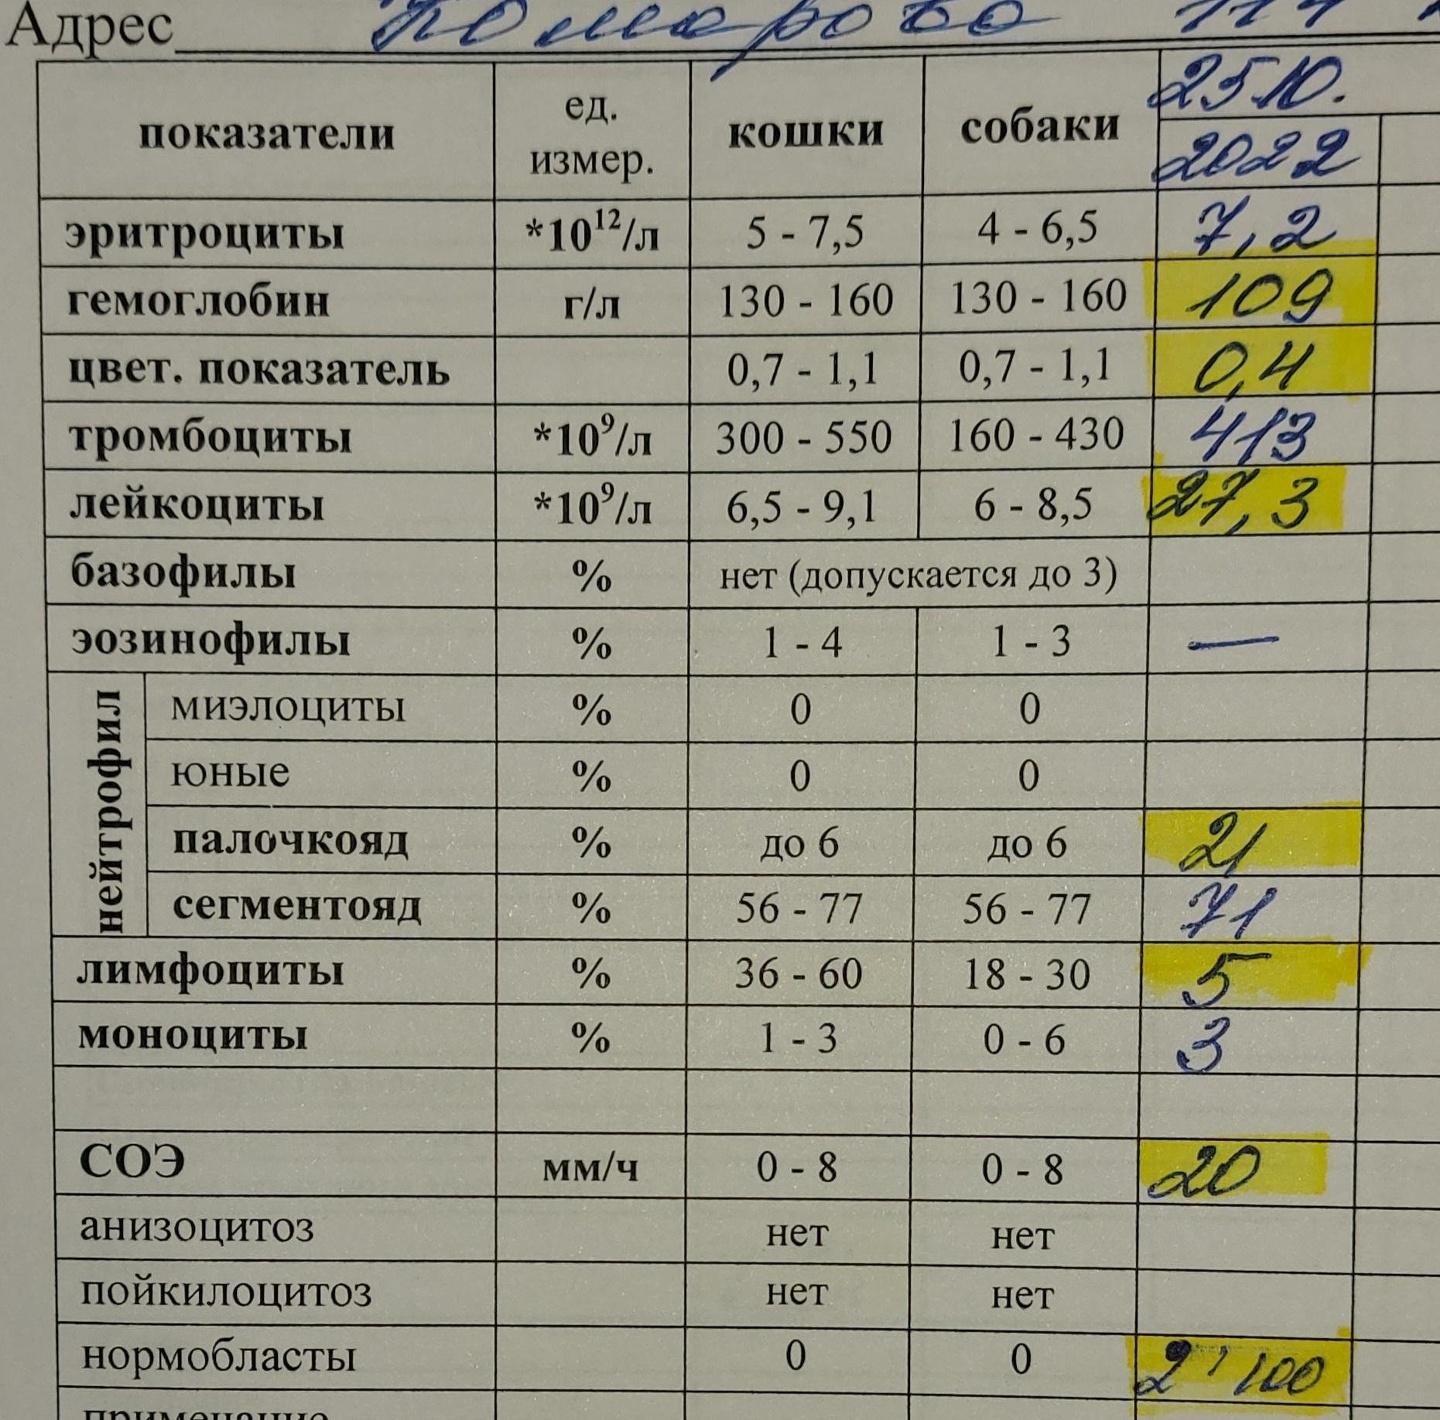 Адрес Комарово
показатели ед. измер. кошки собаки 25.10. 2022
эритроциты *10¹²/л 5 - 7,5 4 - 6,5 7,2
гемоглобин г/л 130 - 160 130 - 160 109
цвет. показатель 0,7 - 1,1 0,7 - 1,1 0,4
тромбоциты *10⁹/л 300 - 550 160 - 430 413
лейкоциты *10⁹/л 6,5 - 9,1 6 - 8,5 27,3
базофилы % нет (допускается до 3)
эозинофилы % 1 - 4 1 - 3 —
нейтрофил
миэлоциты % 0 0
юные % 0 0
палочкояд % до 6 до 6 21
сегментояд % 56 - 77 56 - 77 71
лимфоциты % 36 - 60 18 - 30 5
моноциты % 1 - 3 0 - 6 3
СОЭ мм/ч 0 - 8 0 - 8 20
анизоцитоз нет нет
пойкилоцитоз нет нет
нормобласты 0 0 2 ' 100
примечание